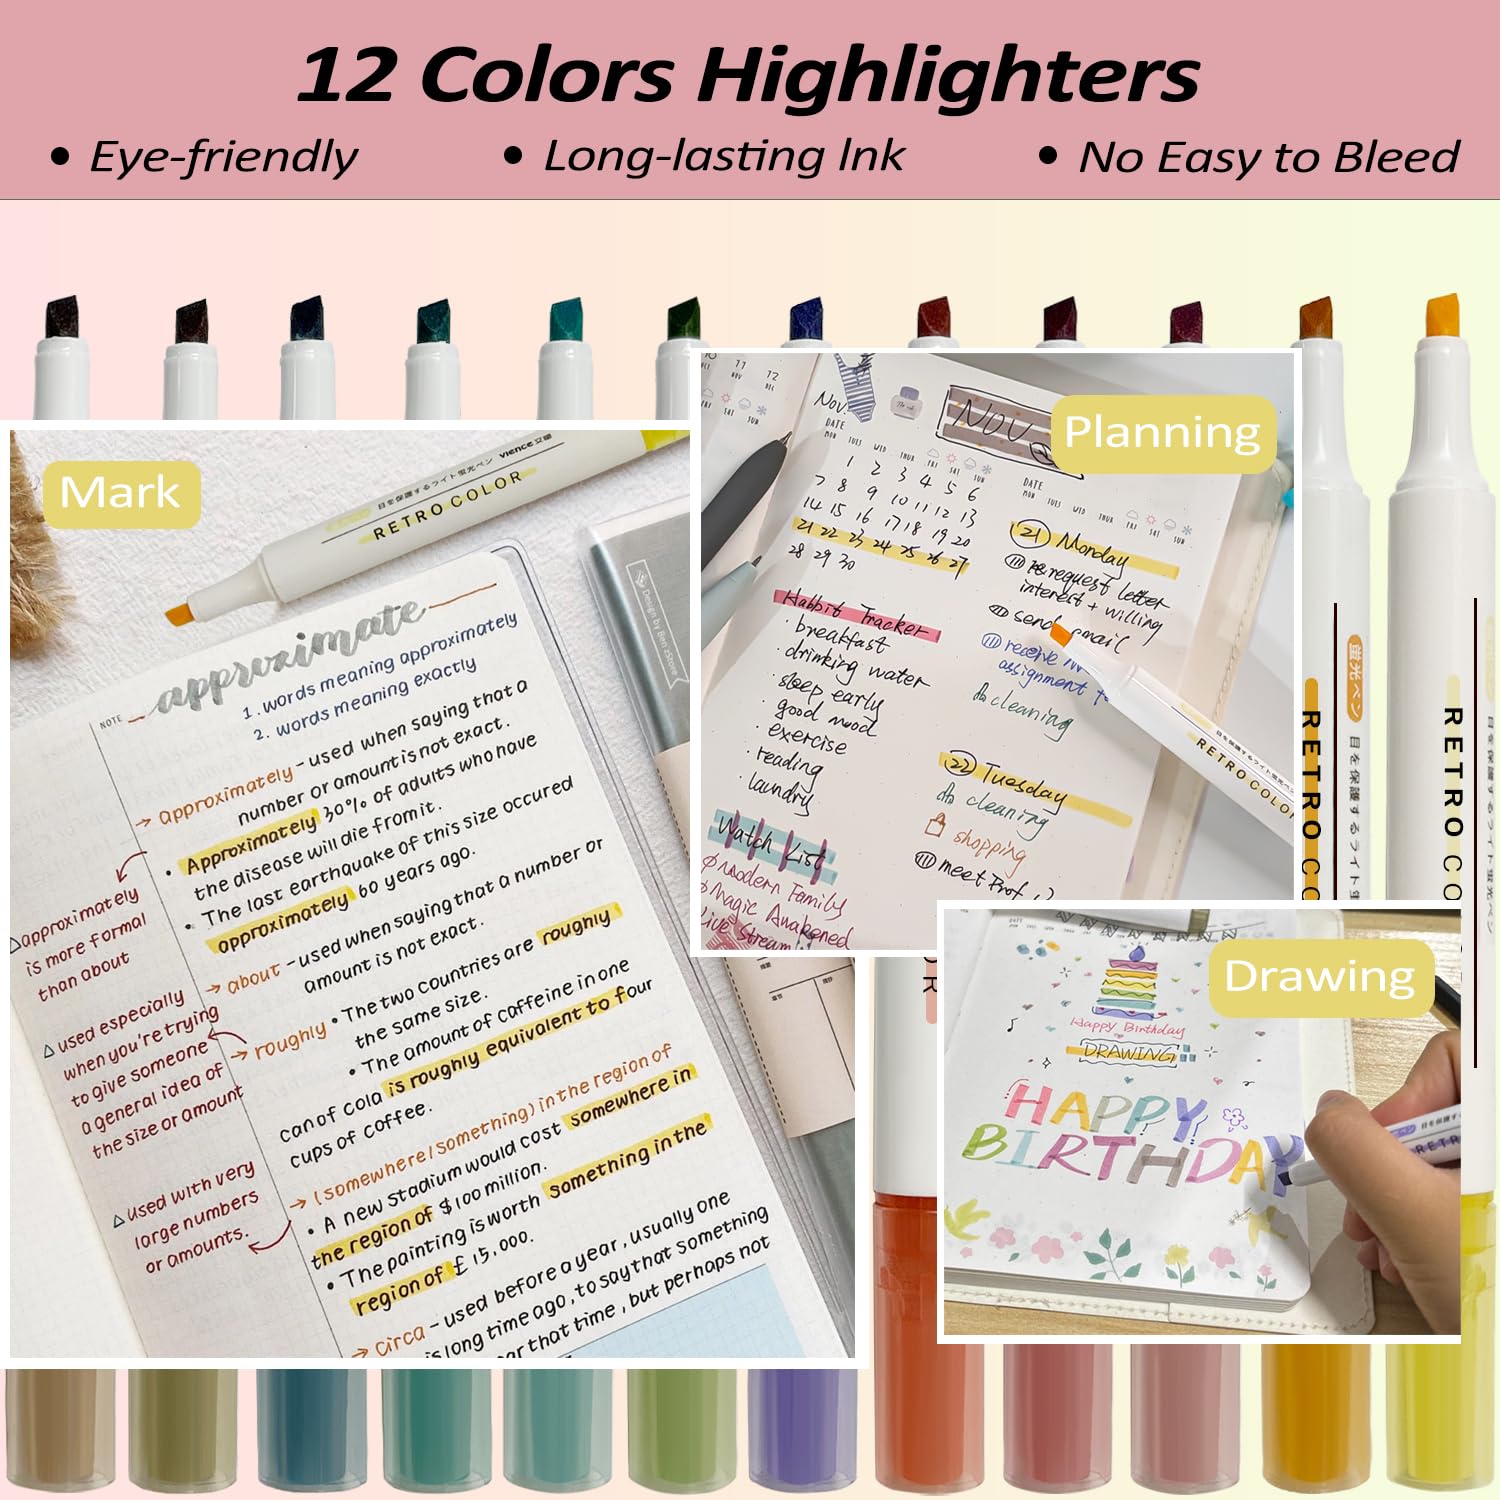 12 Colors Highlighters
• Eye-friendly
• Long-lasting Ink
• No Easy to Bleed
Mark
目を保護するライト蛍光ペン vience
RETRO COLOR
Design by Ben
approximate
NOTE
1. words meaning approximately
2. words meaning exactly
→ approximately - used when saying that a
number or amount is not exact.
• Approximately 30% of adults who have
the disease will die from it.
• The last earthquake of this size occured
approximately 60 years ago.
△approximately
is more formal
than about
→ about - used when saying that a number or
amount is not exact.
△ used especially
when you're trying
to give someone
a general idea of
the size or amount
→ roughly • The two countries are roughly
the same size.
• The amount of caffeine in one
can of cola is roughly equivalent to four
cups of coffee.
→ (somewhere/something) in the region of
• A new stadium would cost somewhere in
the region of $100 million.
• The painting is worth something in the
region of £15,000.
△ used with very
large numbers
or amounts.
→ circa - used before a year, usually one
is long time ago, to say that something
ar that time, but perhaps not
Planning
10 11 12
OCT NOV DEC
FRI SAT SUN
Nov.
NOV
DATE
MON TUES WED THUR FRI SAT SUN
1 2 3 4 5 6
7 8 9 10 11 12 13
14 15 16 17 18 19 20
21 22 23 24 25 26 27
28 29 30
Habbit Tracker
· breakfast
· drinking water
· sleep early
· good mood
· exercise
· reading
· laundry
Watch List
Modern Family
Magic Awakened
Live Stream
DATE
MON TUES WED THUR FRI SAT SUN
21 Monday
request letter
interest + willing
send email
receive
assignment
cleaning
22 Tuesday
cleaning
shopping
meet Prof
目を保護するライト蛍光ペン
RETRO COLOR
蛍光ペン 目を保護するライト蛍
RETRO CO
目を保護するライト蛍光ペン
RETRO CO
OR
Drawing
Happy Birthday
DRAWING
HAPPY
BIRTHDAY
目を保護するライト
RETR